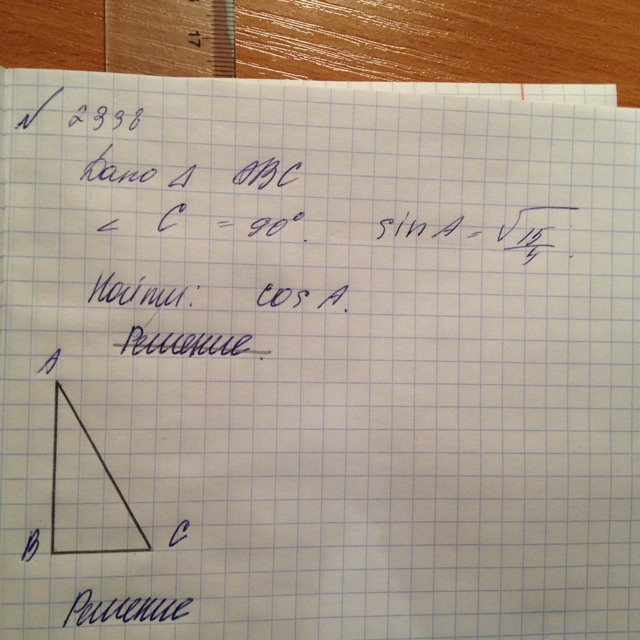 17
№ 2338
Дано Δ ABC
< C = 90°. sin A = √15/4.
Найти: cos A.
Решение.
A
B C
Решение